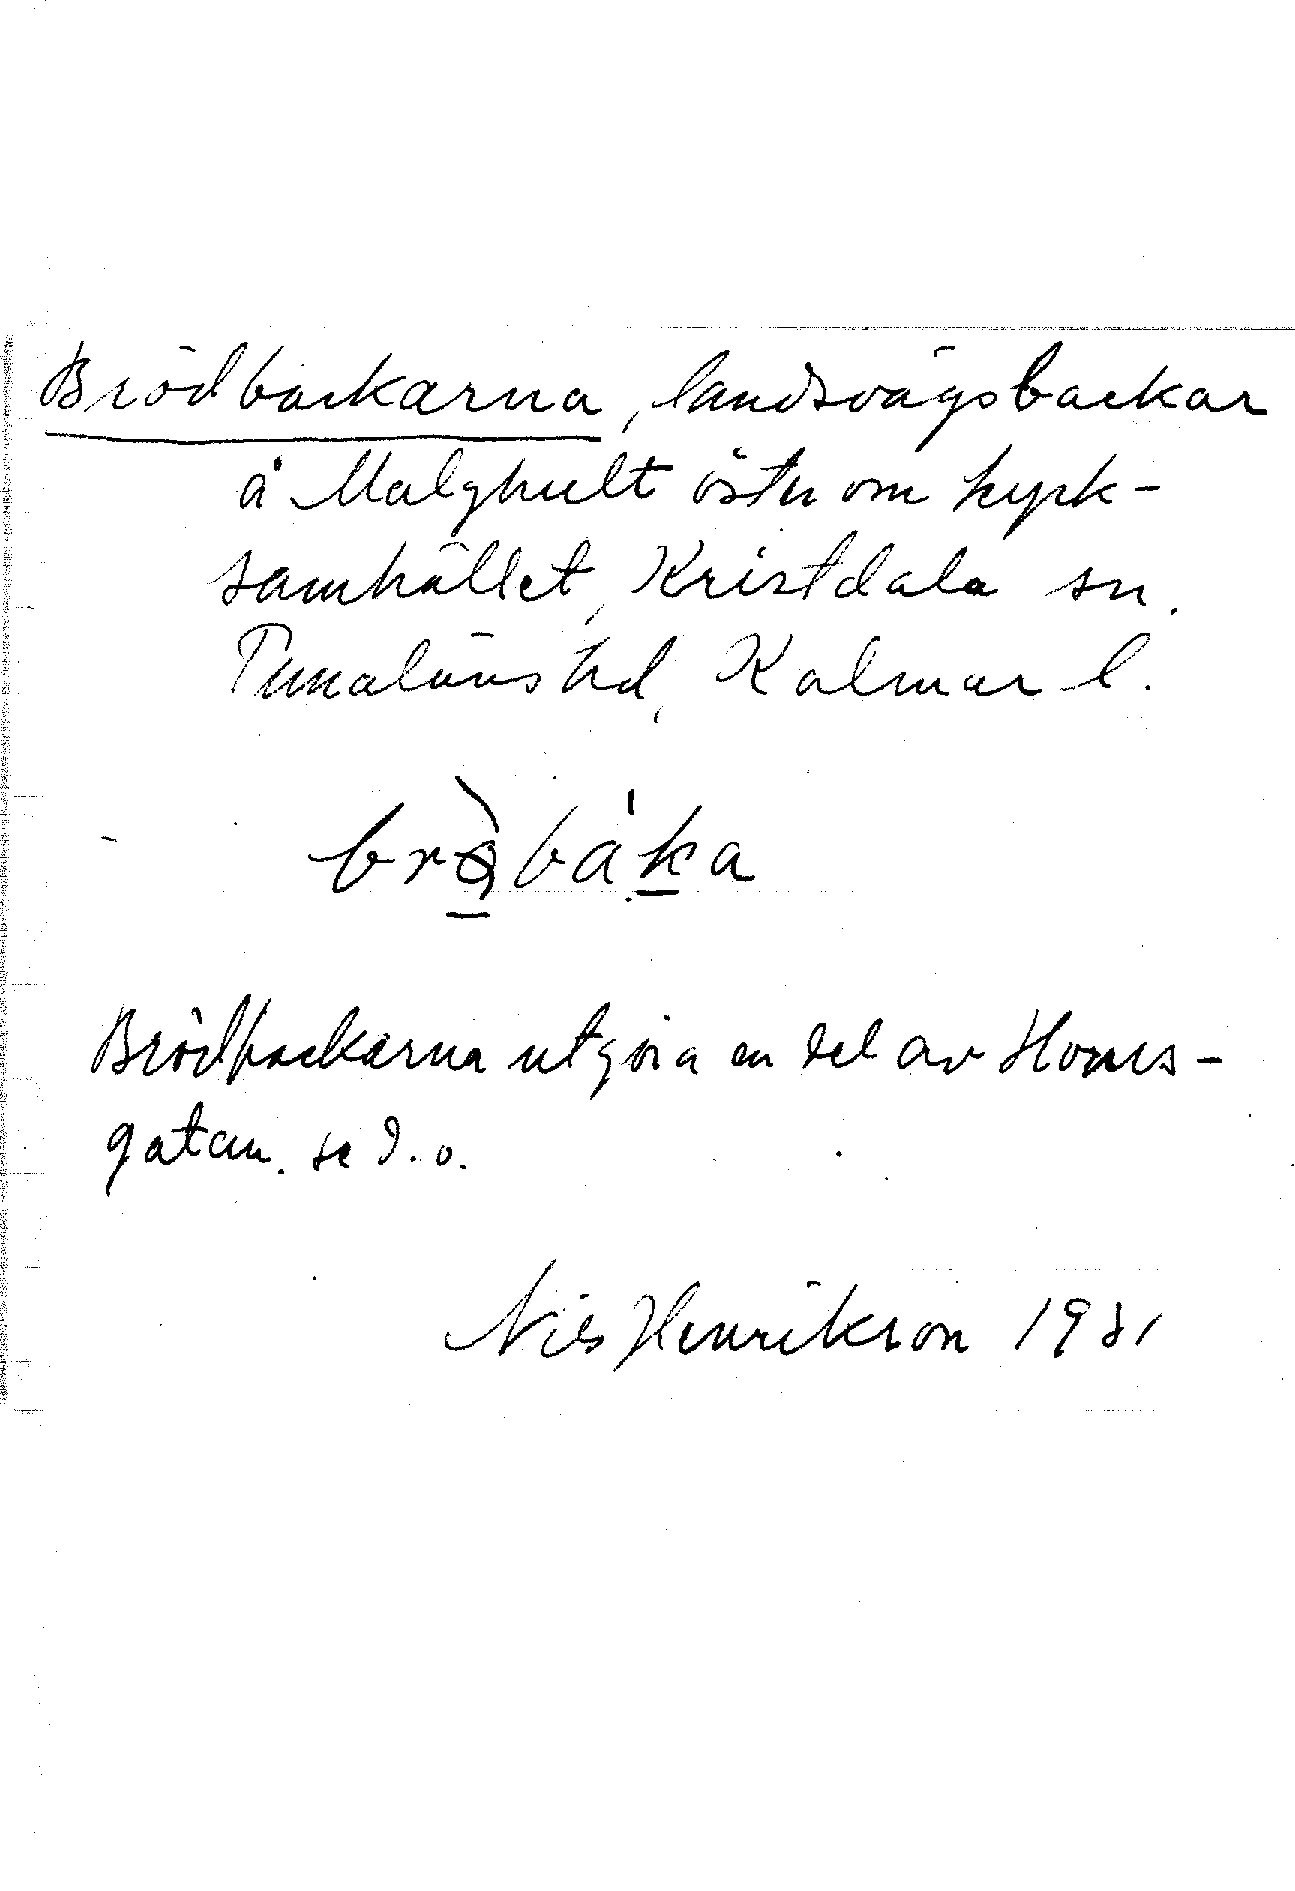 Brödbackarna, landsvägsbackar
å Malghult öster om kyrk-
samhället, Kristdala sn.
Tunaläns hd, Kalmar l.
brö̀bákа
Brödbackarna utgöra en del av
gatan. se d.o.
Nils Henrikson 1981